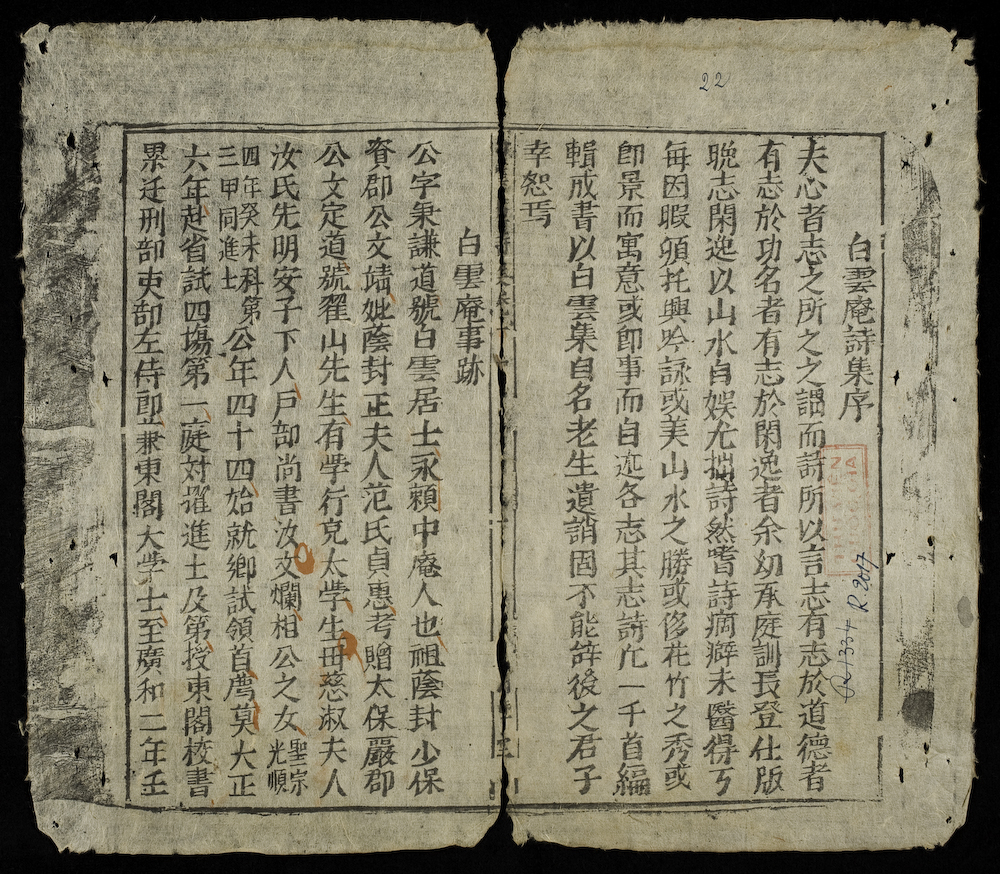 22
白雲庵詩集序
夫心者志之所之之謂而詩所以言志有志於道德者
有志於功名者有志於閑逸者余幼承庭訓長登仕版
晚志閑逸以山水自娛尤拙詩然嗜詩痼癖未醫得丂
每因暇頒托興吟詠或美山水之勝或侈花竹之秀或
即景而寓意或即事而自述各志其志詩凢一千首編
輯成書以白雲集自名老生遺誚固不能辝後之君子
幸恕焉
白雲庵事跡
公字秉謙道號白雲居士永頼中庵人也祖蔭封少保
郡公文靖妣蔭封正夫人范氏貞惠考贈太保嚴郡
公文定道號翟山先生有学行克太学生母慈淑夫人
汝氏先明安子下人戸部尚書汝文爛相公之女聖宗光順
四年癸未科第三甲同進士公年四十四始就鄉試領首薦莫大正
六年赴省試四場第一庭対擢進士及第授東閣校書
累迁刑部吏部左侍郎兼東閣大学士至廣和二年壬
R.1334 R.2017